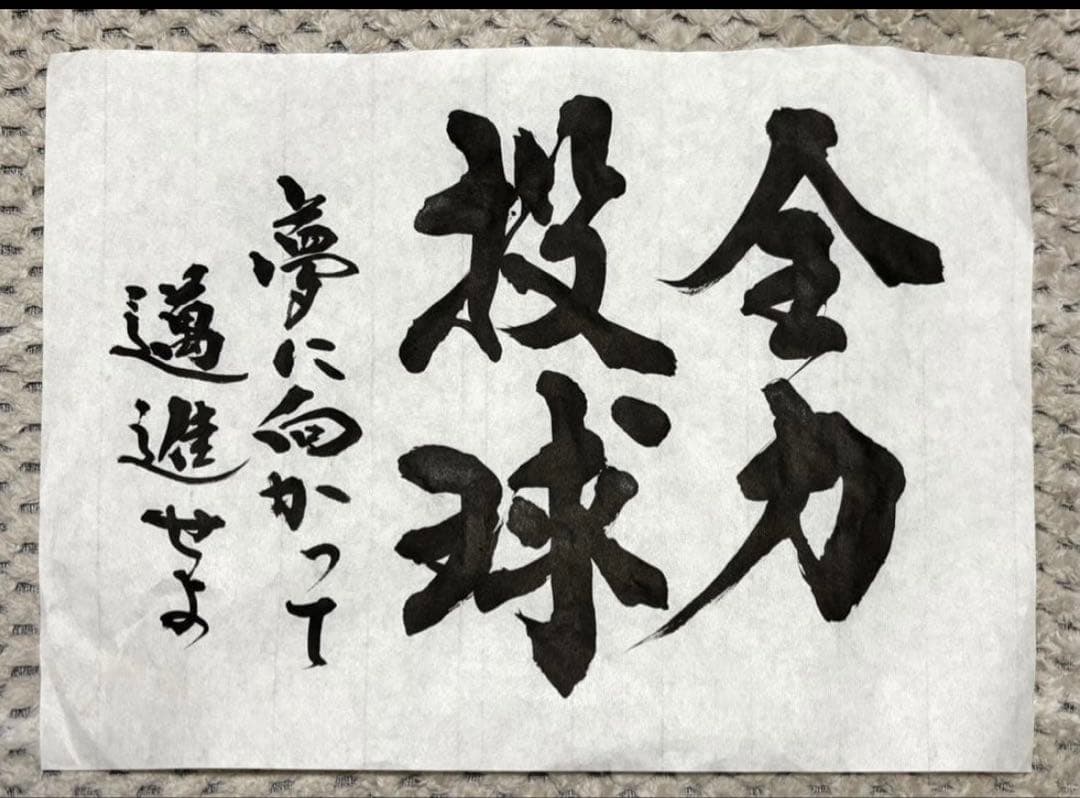 全力
投球
夢に向かって
邁進せよ